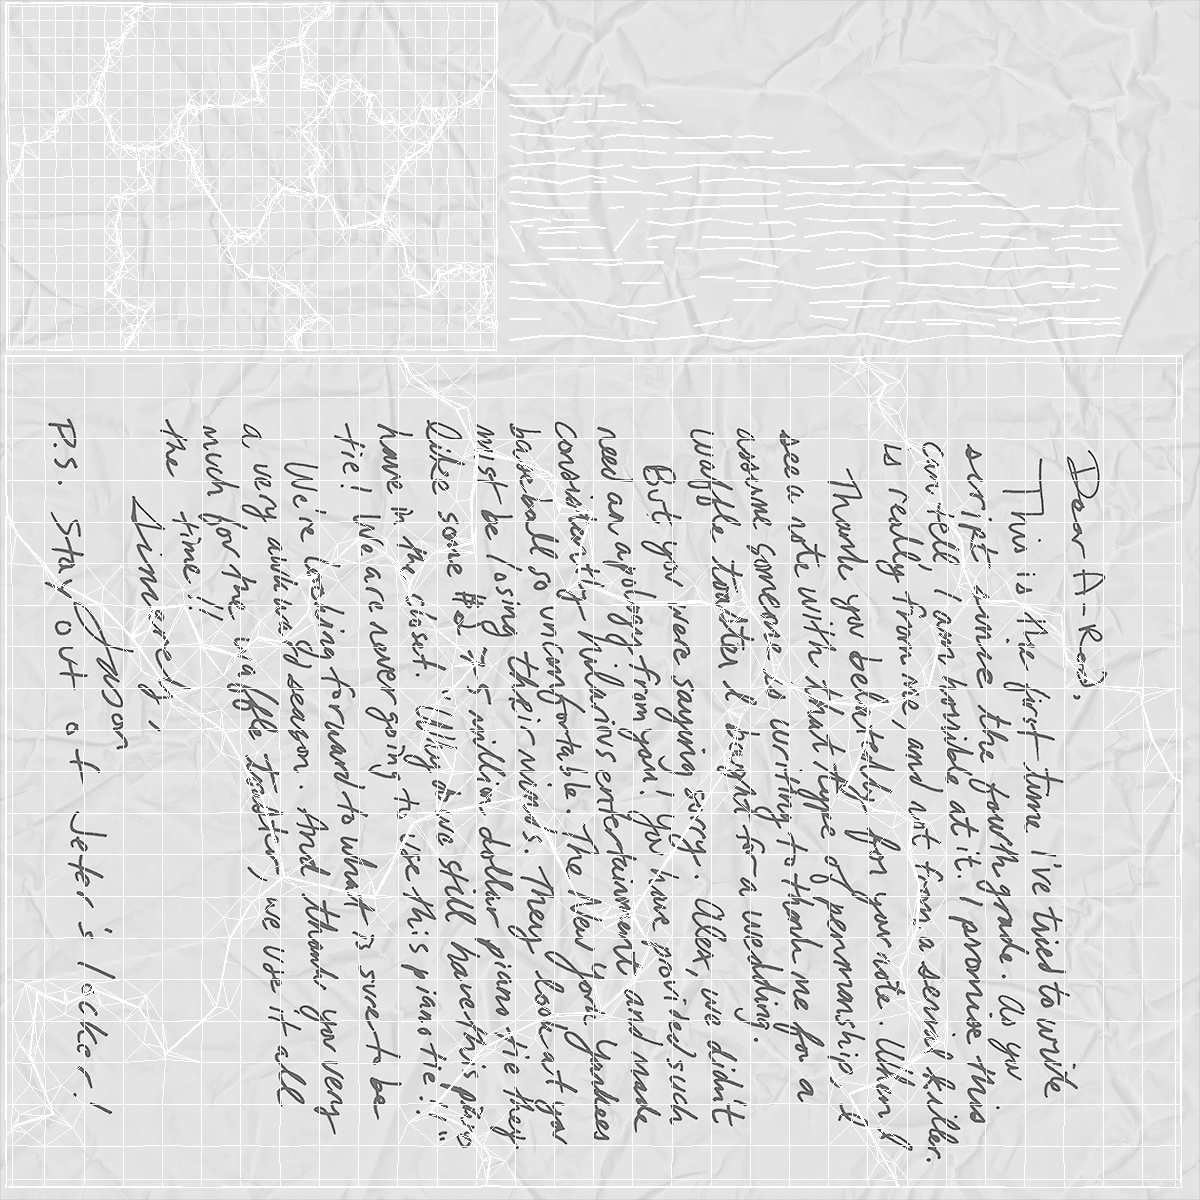 Dear A-Rod,
This is the first time I've tried to write
script since the fourth grade. As you
can tell, I am horrible at it. I promise this
is really from me, and not from a serial killer.
Thank you belatedly for your note. When I
see a note with that type of penmanship, I
assume someone is writing to thank me for a
waffle toaster I bought for a wedding.
But you were saying sorry. Alex, we didn't
need an apology from you! You have provided such
consistently hilarious entertainment and made
baseball so uncomfortable. The New York Yankees
must be losing their minds. They look at you
like some $275 million dollar piano tie they
have in the closet. "Why do we still have this piano
tie! We are never going to use this piano tie!!"
We're looking forward to what is sure to be
a very awkward season. And thank you very
much for the waffle toaster, we use it all
the time!!
Sincerely,
Jason
P.S. Stay out of Jeter's locker!